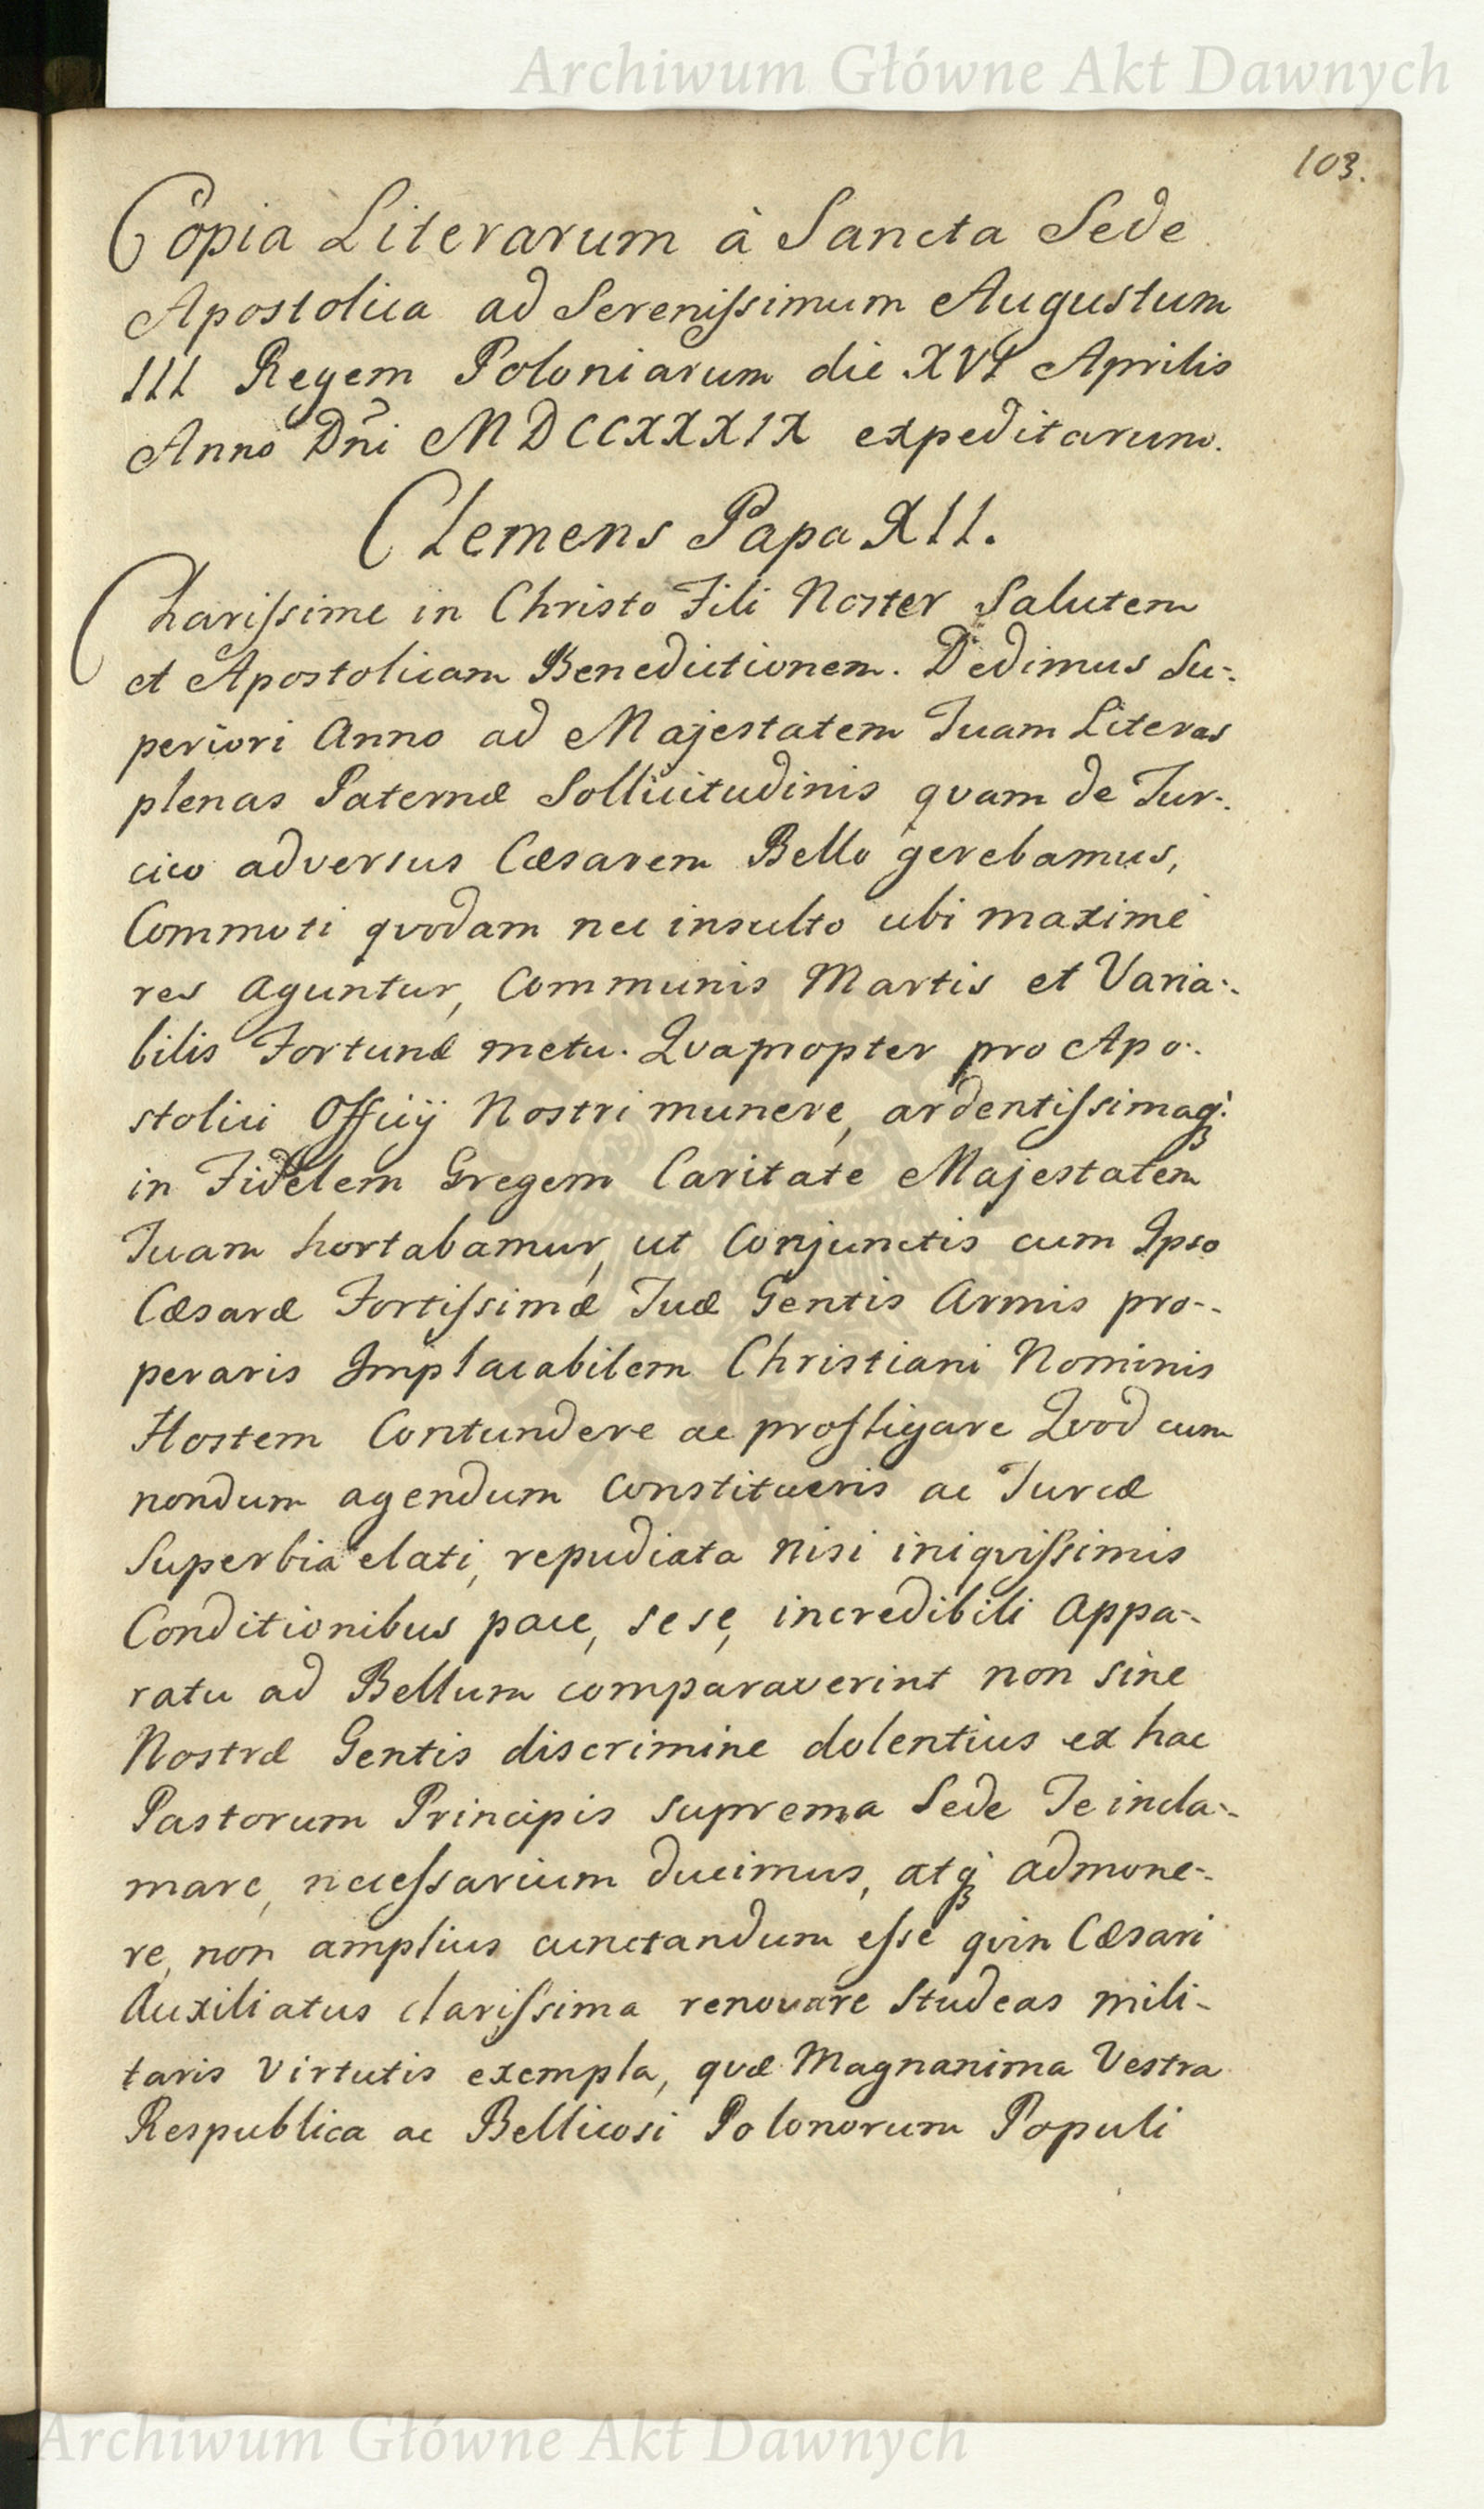 Archiwum Główne Akt Dawnych
103.
Copia Literarum à Sancta Sede
Apostolica ad Sereniſsimum Augustum
III Regem Poloniarum die XVI Aprilis
Anno Dn̄i MDCCXXXIX expeditarum.
Clemens Papa XII.
Chariſsime in Christo Fili Noster Salutem
et Apostolicam Benedictionem. Dedimus Su-
periori Anno ad Majestatem Tuam Literas
plenas Paternæ Sollicitudinis quam de Tur-
cico adversus Cæsarem Bello gerebamus,
Commoti quodam nec insulto ubi maximè
res aguntur, Communis Martis et Varia-
bilis Fortunæ metu. Quapropter pro Apo-
stolici Officij Nostri munere, ardentiſsimaq́;
in Fidelem Gregem Caritate Majestatem
Tuam hortabamur, ut Conjunctis cum Ipso
Cæsaræ Fortiſsimæ Tuæ Gentis Armis pro-
peraris Implacabilem Christiani Nominis
Hostem Contundere ac profligare Quod cum
nondum agendum Constitueris ac Turcæ
Superbia elati, repudiata nisi iniquiſsimis
Conditionibus pace, sese, incredibili Appa-
ratu ad Bellum comparaverint non sine
Nostræ Gentis discrimine dolentius ex hac
Pastorum Principis suprema Sede Te incla-
mare, neceſsarium ducimus, atq́; admone-
re, non amplius cunctandum eſse quin Cæsari
Auxiliatus clariſsima renovare Studeas mili-
taris Virtutis exempla, quæ Magnanima Vestra
Respublica ac Bellicosi Polonorum Populi
Archiwum Główne Akt Dawnych